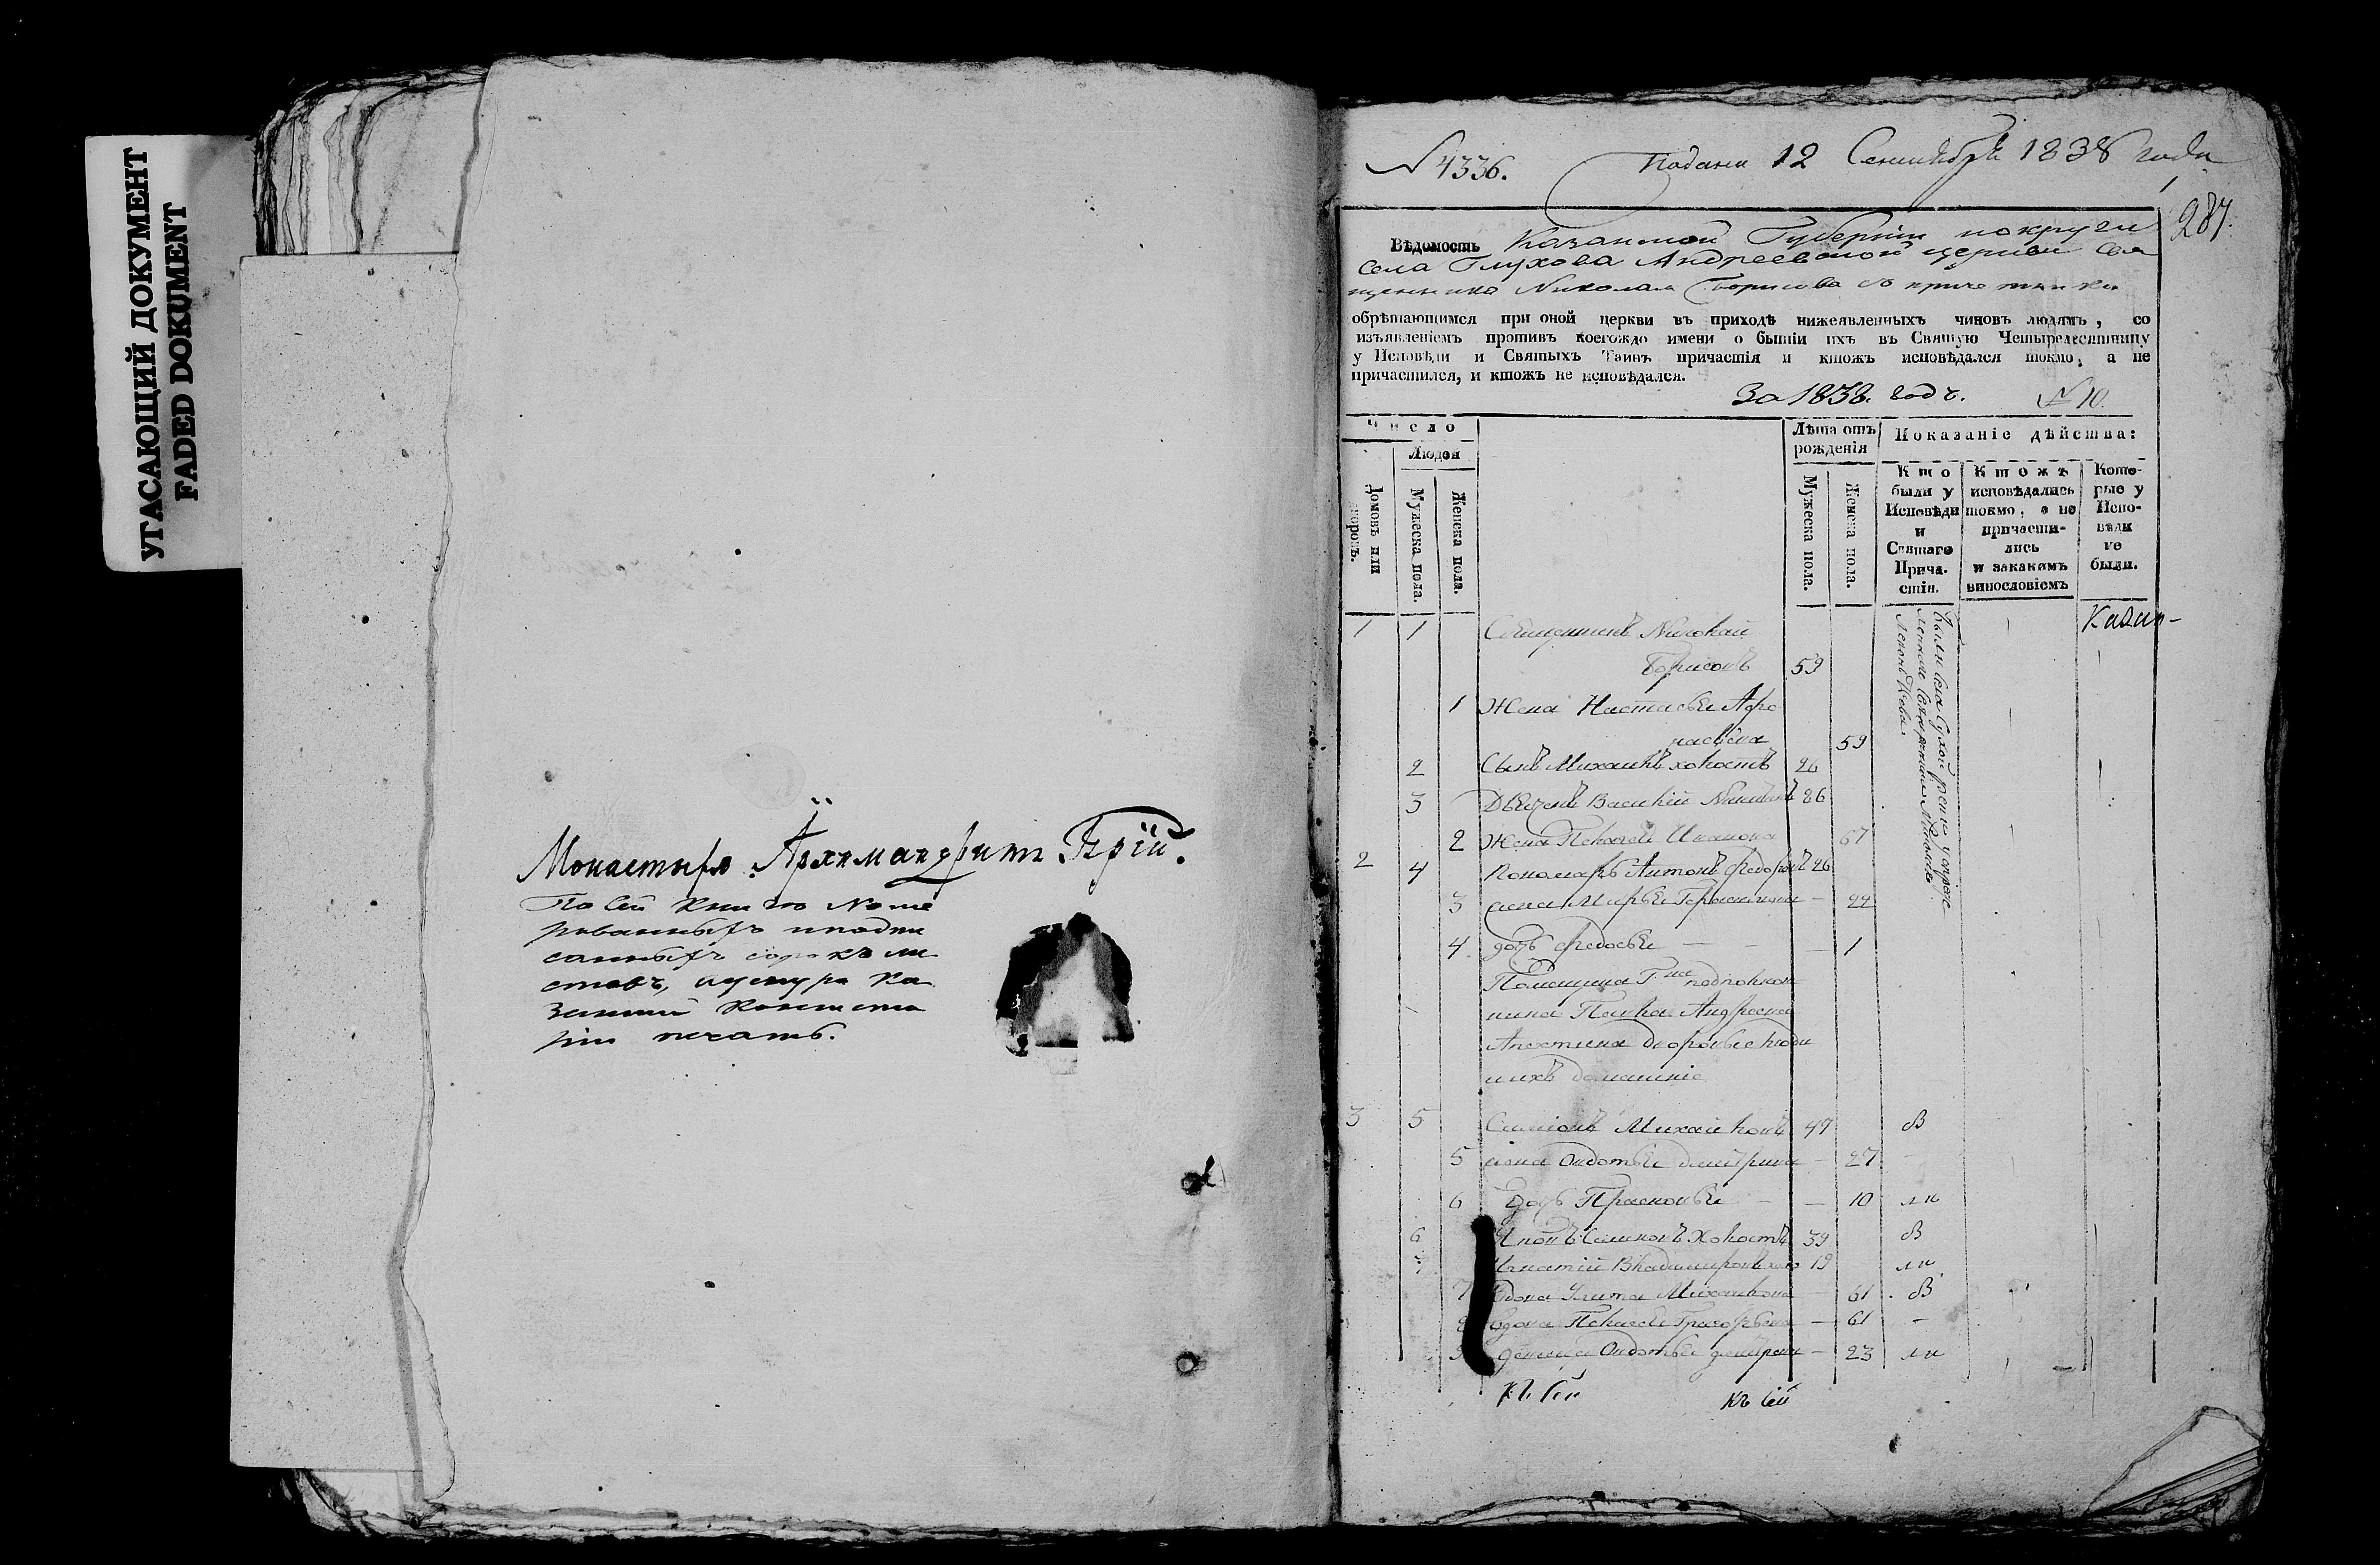 УГАСАЮЩИЙ ДОКУМЕНТ
FADED DOKUMENT
Монастыря Архимандритъ
По сей книгѣ номе
рованныхъ и подпи
санныхъ сорокъ ли
стовъ, а у снура ка
зенной Консисто
ріи печать.
№ 4336. Подана 12 Сентября 1838 года
287.
Вѣдомость Казанской Губерніи
села Глухова Андреевской церкви Свя
щенника Николая Борисова съ причетники
обрѣтающимся при оной церкви въ приходѣ нижеявленныхъ чиновъ людямъ, со
изъявленіемъ противъ коегождо имени о бытіи ихъ въ Святую Четыредесятницу
у Исповѣди и Святыхъ Таинъ причастія и ктожъ исповѣдался токмо, а не
причастился, и ктожъ не исповѣдался.
За 1838. годъ. № 10.
Число
Людей
Домовъ или дворовъ.
Мужеска пола.
Женска пола.
Лѣта отъ рожденія
Мужеска пола.
Женска пола.
Показаніе дѣйства:
Кто были у Исповѣди и Святаго Прича- стія.
Ктожъ исповѣдались токмо, а не причасти- лись и закакимъ винословіемъ
Кото- рые у Испо- вѣди не были.
1 1 Священникъ Николай
Борисовъ 59
1 Жена Настасья Афо
насьева 59
2 Сынъ Михаилъ холостъ 26
3 Василій 86
2 Жена Пелагея Иванова 67
2 4 Пономарь Антонъ Федоровъ 26
3 жена Марья Герасимова — 22
4 дочь Федосья — — — 1
Помещика
Павла Андреева
дворовые люди
ихъ домашніе
3 5 Симіонъ Михайловъ 47 В
5 жена Овдотья Дмитріева — 27
6 дочь Прасковья — — 10
6 Семеновъ Холостъ 39 В
7 Игнатій Владимировъ 19
7 вдова Улита Михайлова — 61 В
8 вдова Пелагея Григорьева — 61 —
9 девица Овдотья — 23
къ сей
къ сей